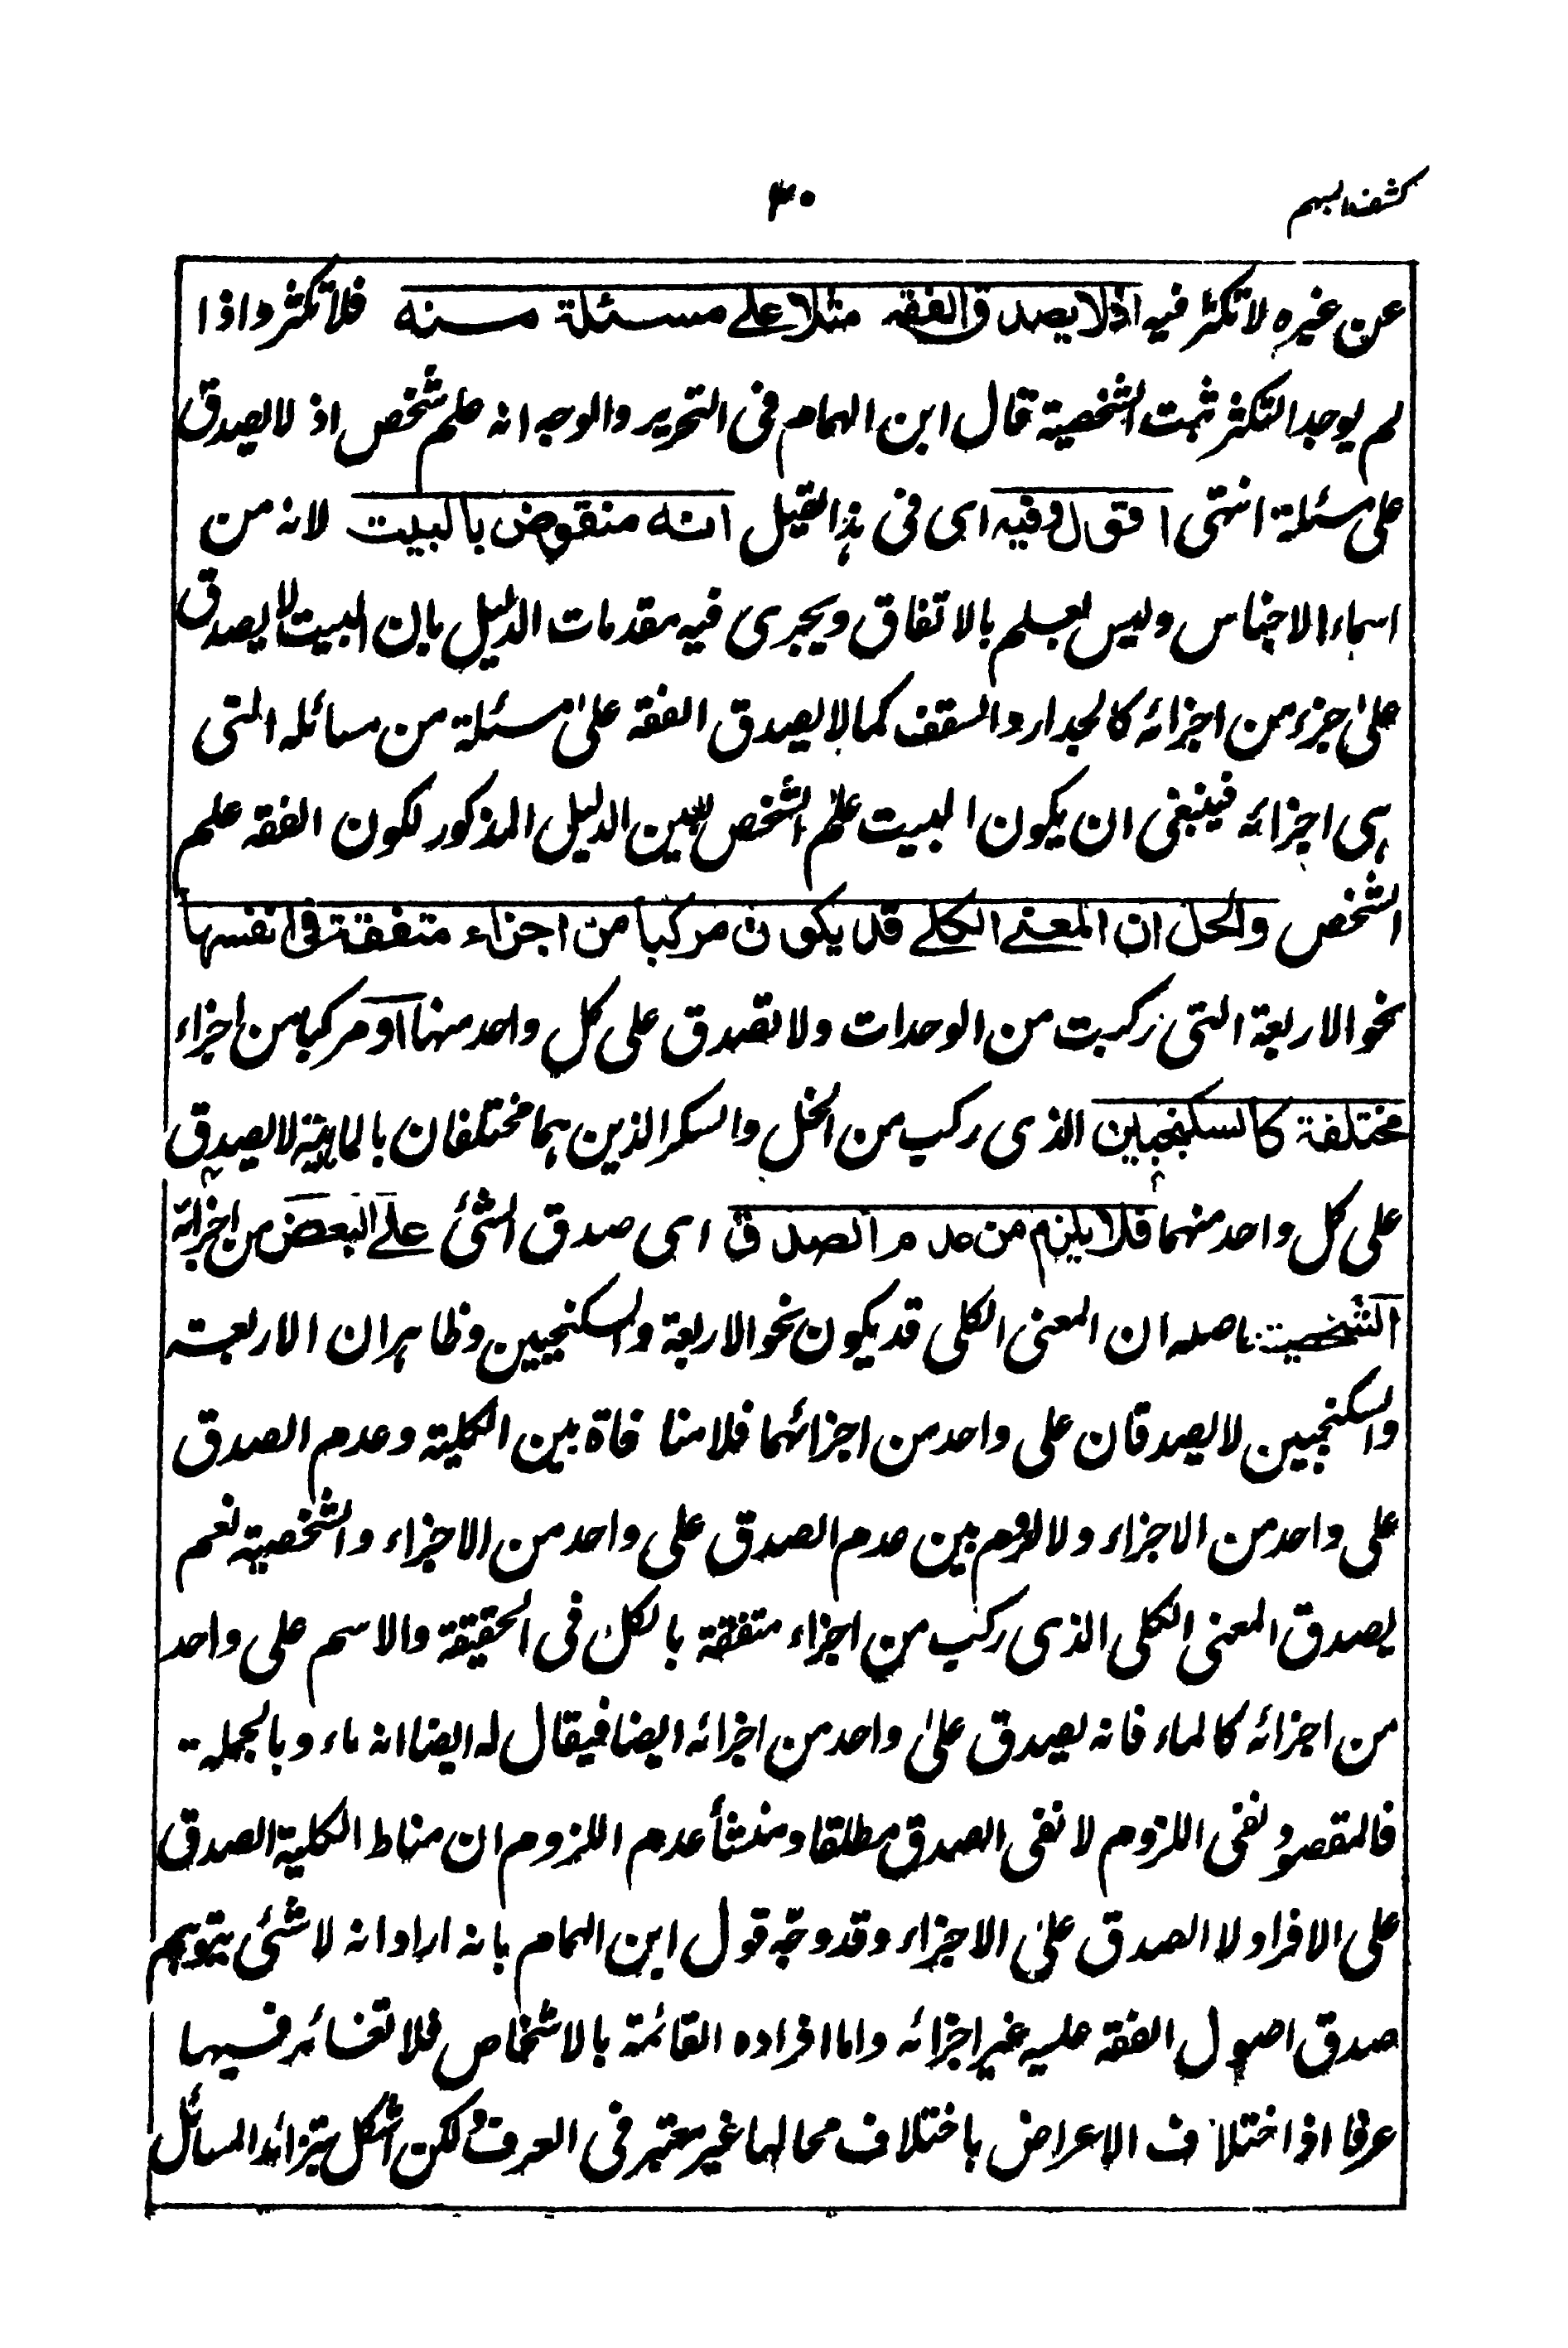 كشف المبهم
٣٠
عن غيره لا تكثر فيه اذ لا يصدق الفقه مثلا على مسئلة مسئلة فلا تكثر واذا
لم يوجد التكثر ثمت الشخصية قال ابن الهمام فى التحرير والوجه انه علم شخص اذ لا يصدق
على مسئلة انتهى اقول وفيه اى فى هذا القيل انه منقوض بالبيت لانه من
اسماء الاجناس وليس بعلم بالاتفاق ويجرى فيه مقدمات الدليل بان البيت لا يصدق
على جزء من اجزائه كالجدار والسقف كما لا يصدق الفقه على مسئلة من مسائله التى
هى اجزائه فينبغى ان يكون البيت علم الشخص بعين الدليل المذكور لكون الفقه علم
الشخص والحل ان المعنى الكلى قد يكون مركبا من اجزاء متفقة فى انفسها
نحو الاربعة التى ركبت من الوحدات ولا تصدق على كل واحد منها او مركبا من اجزاء
مختلفة كالسكنجبين الذى ركب من الخل والسكر الذين هما مختلفان بالماهية لا يصدق
على كل واحد منهما فلا يلزم من عدم الصدق اى صدق الشئ على البعض من اجزائه
الشخصية حاصله ان المعنى الكلى قد يكون نحو الاربعة والسكنجبين وظاهر ان الاربعة
والسكنجبين لا يصدقان على واحد من اجزائهما فلا منافاة بين الكلية وعدم الصدق
على واحد من الاجزاء ولا لزوم بين عدم الصدق على واحد من الاجزاء والشخصية نعم
يصدق المعنى الكلى الذى ركب من اجزاء متفقة بالكل فى الحقيقة والاسم على واحد
من اجزائه كالماء فانه يصدق على واحد من اجزائه ايضا فيقال له ايضا انه ماء وبالجملة
فالمقصود نفى اللزوم لا نفى الصدق مطلقا ومنشأ عدم اللزوم ان مناط الكلية الصدق
على الافراد لا الصدق على الاجزاء وقد وجّه قول ابن الهمام بانه اراد انه لا شئ يتوهم
صدق اصول الفقه عليه غير اجزائه واما افراده القائمة بالاشخاص فلا تغائر فيها
عرفا اذ اختلاف الاعراض باختلاف محالها غير معتبر فى العرف لكن اشكل بتزائد المسائل